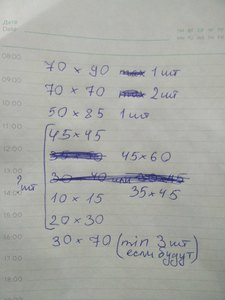 Дата
Date
09:00
70 × 90 1 шт
10:00
70 × 70 2 шт
11:00
50 × 85 1 шт
12:00
45 × 45
45 × 60
13:00
? шт
14:00
35 × 45
10 × 15
15:00
20 × 30
16:00
30 × 70 (min 3 шт
если будут)
17:00
18:00